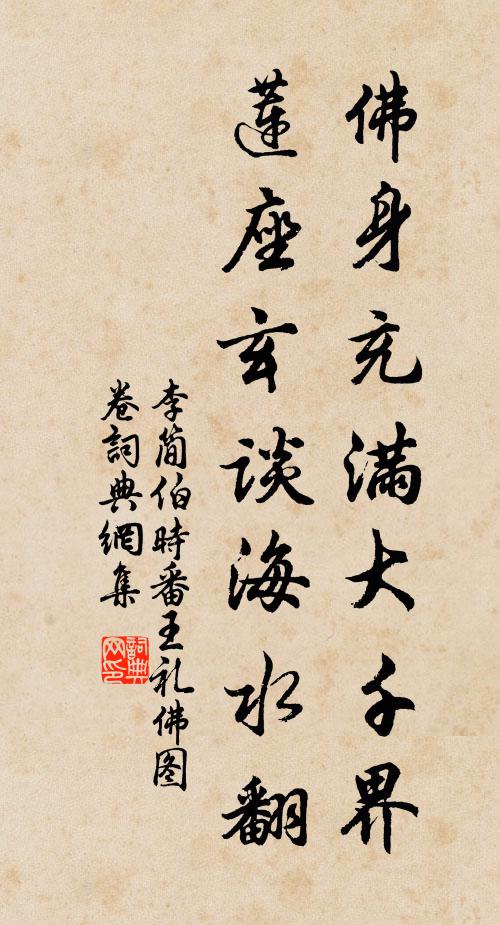 佛身充满大千界
蓮座玄談海水翻
李简伯時番王礼佛图
卷詞典網集
詞典网印